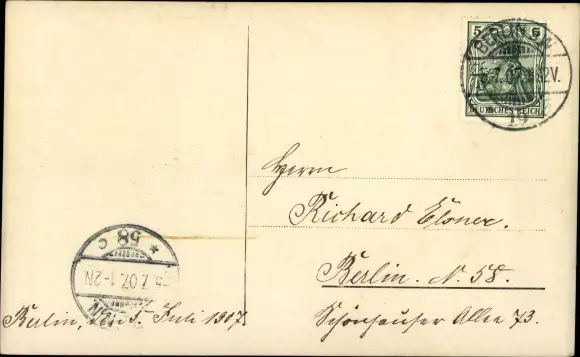 5 5
DEUTSCHES REICH
BERLIN SW
5.7.07. 12V.
19
Herrn
Richard Elsner.
Berlin. N. 58.
Schönhauser Allee 73.
* 58 c
5.7.07. 1-2N
Berlin, den 5. Juli 1907.